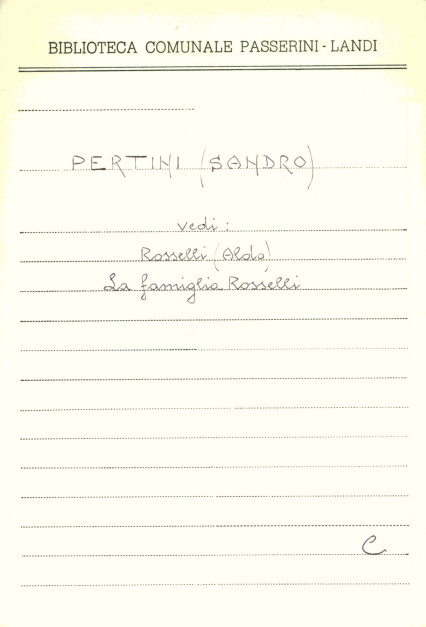 BIBLIOTECA COMUNALE PASSERINI - LANDI
PERTINI (SANDRO)
vedi :
Rosselli (Aldo)
La famiglia Rosselli
C